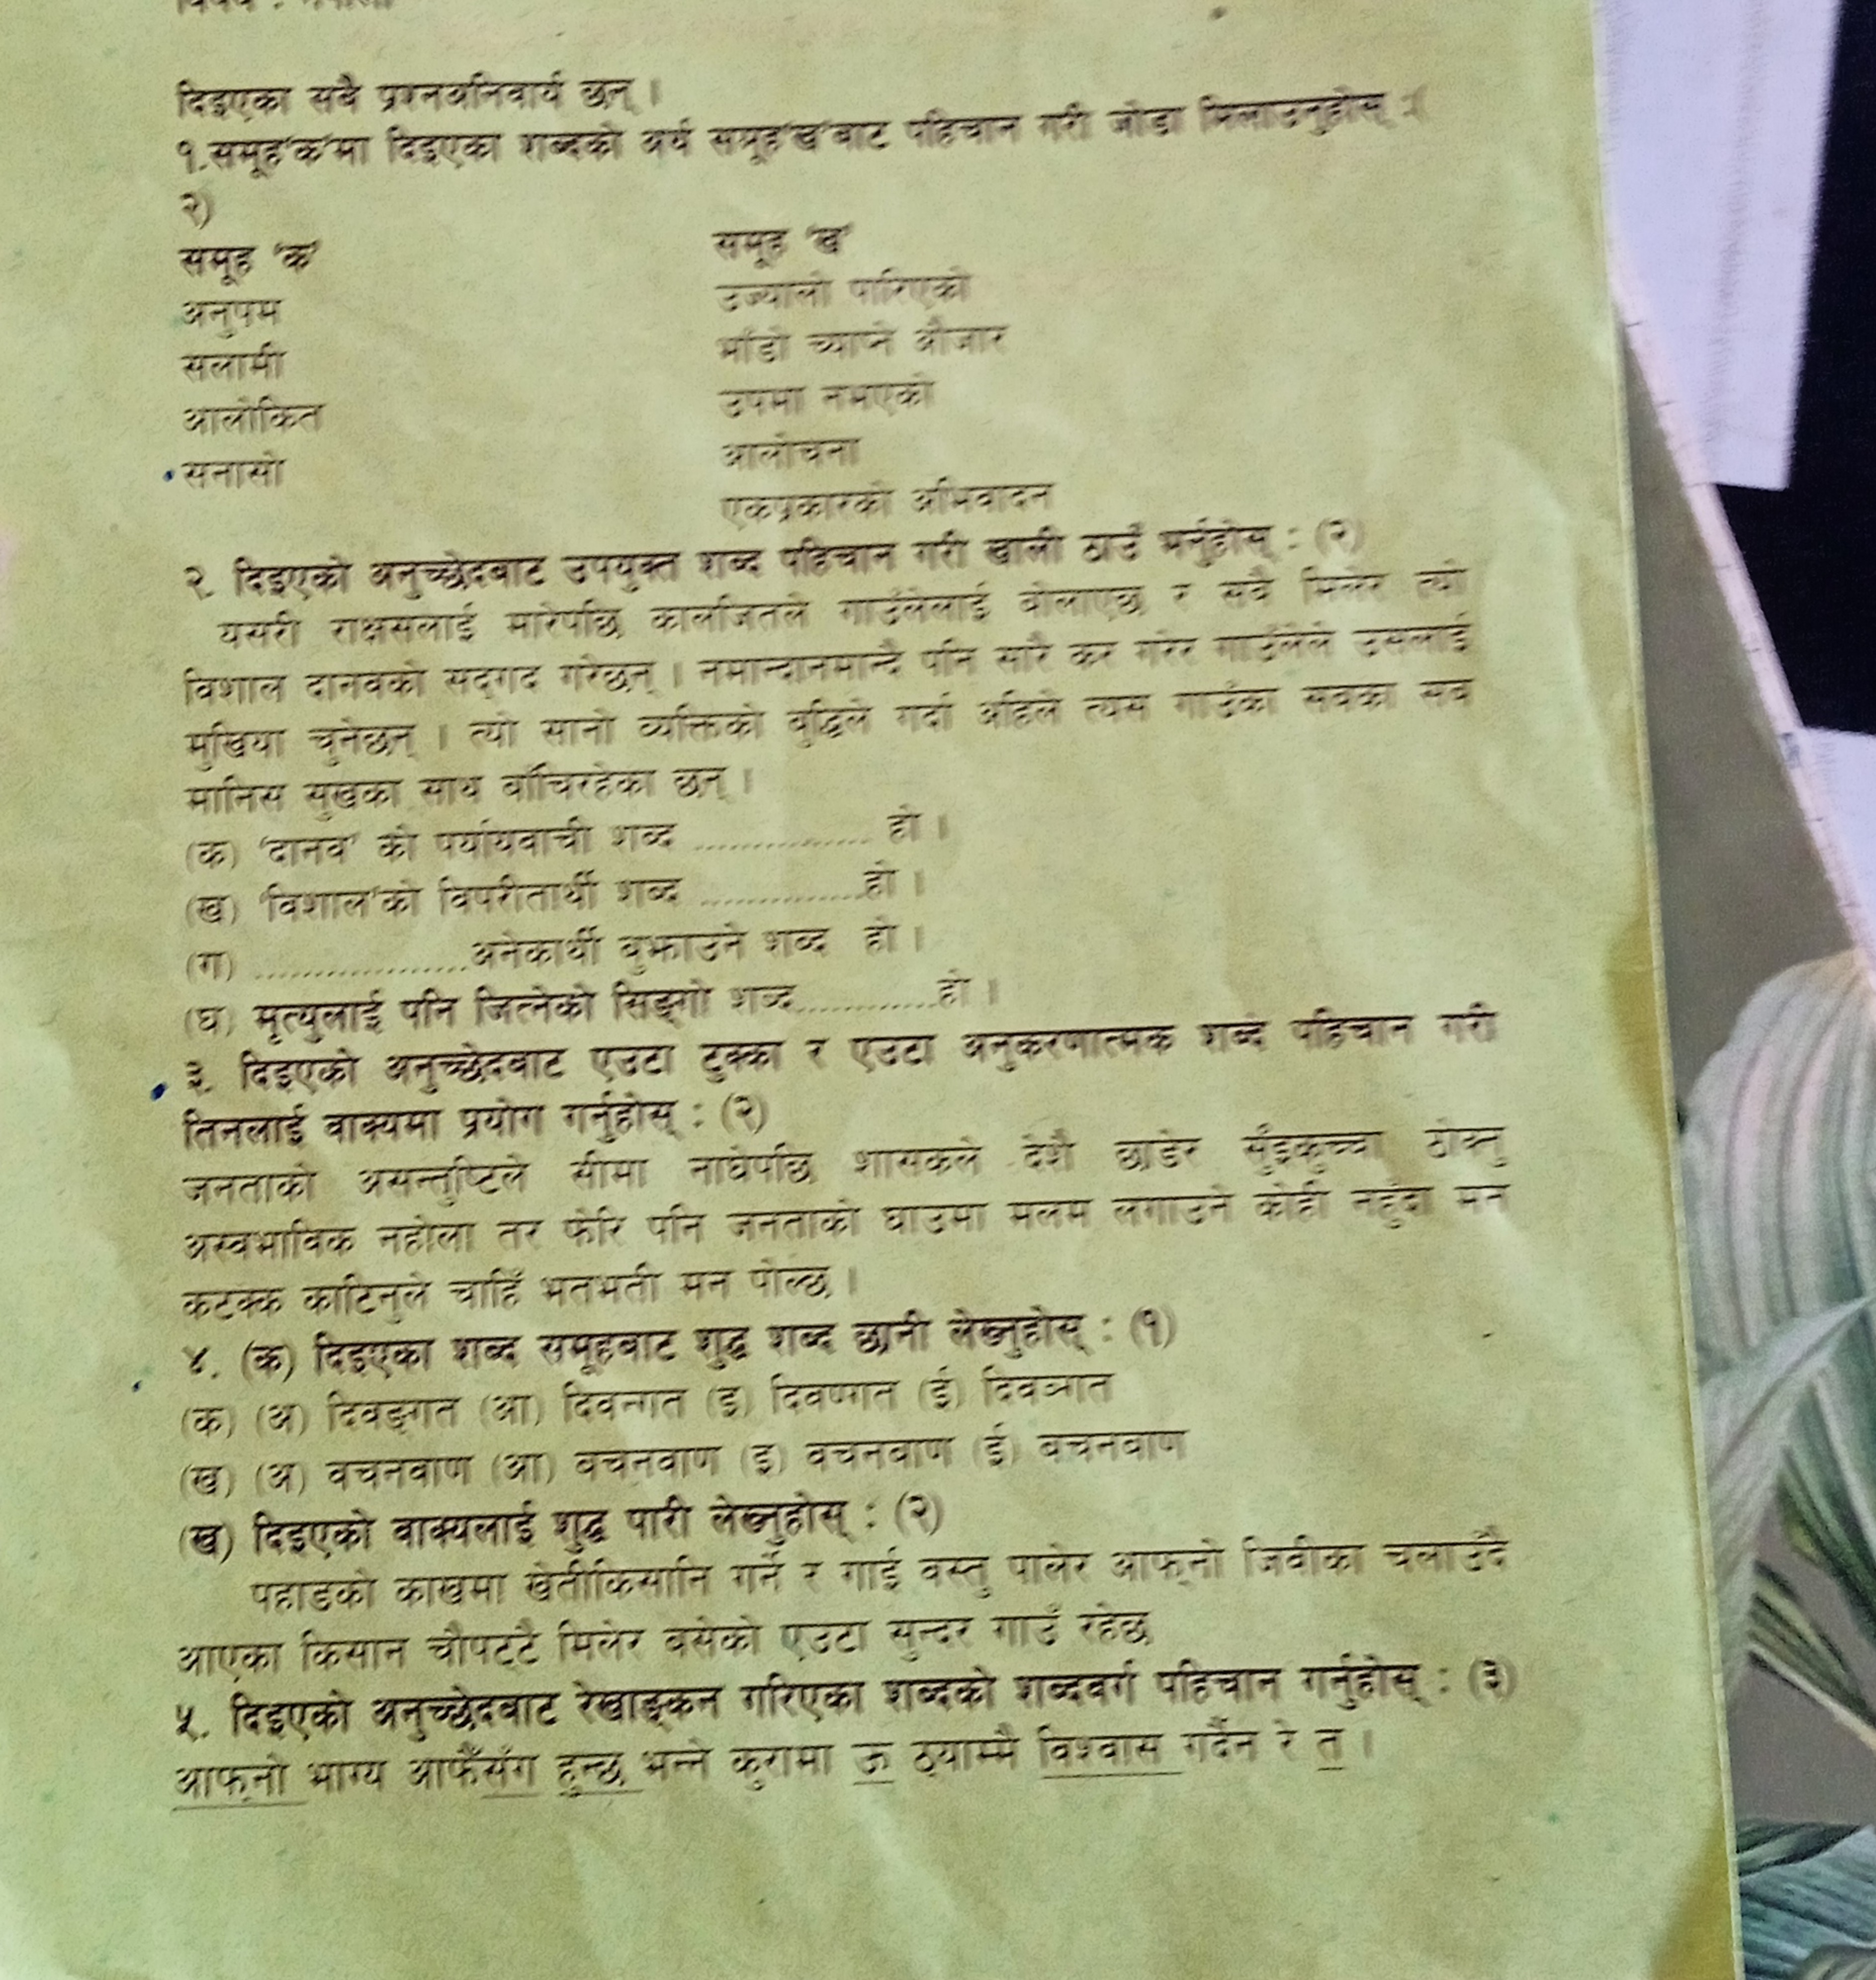 दिइएका सबै प्रश्नअनिवार्य छन् ।
१.समूह'क'मा दिइएका शब्दको अर्थ समूह'ख'बाट पहिचान गरी जोडा मिलाउनुहोस् :(
२)
समूह 'क' समूह 'ख'
अनुपम उज्यालो पारिएको
सलामी भाँडो च्याप्ने औजार
आलोकित उपमा नभएको
सनासो आलोचना
एकप्रकारको अभिवादन
२. दिइएको अनुच्छेदबाट उपयुक्त शब्द पहिचान गरी खाली ठाउँ भर्नुहोस् : (२)
यसरी राक्षसलाई मारेपछि कालजितले गाउँलेलाई बोलाएछ र सबै मिलेर त्यो
विशाल दानवको सद्गद गरेछन् । नमान्दानमान्दै पनि सारै कर गरेर गाउँलेले उसलाई
मुखिया चुनेछन् । त्यो सानो व्यक्तिको बुद्धिले गर्दा अहिले त्यस गाउँका सबका सब
मानिस सुखका साथ बाँचिरहेका छन् ।
(क) 'दानव' को पर्यायवाची शब्द ............... हो ।
(ख) 'विशाल'को विपरीतार्थी शब्द ..............हो ।
(ग) ..................अनेकार्थी बुझाउने शब्द हो ।
(घ) मृत्युलाई पनि जित्नेको सिङ्गो शब्द............हो ।
३. दिइएको अनुच्छेदबाट एउटा टुक्का र एउटा अनुकरणात्मक शब्द पहिचान गरी
तिनलाई वाक्यमा प्रयोग गर्नुहोस् : (२)
जनताको असन्तुष्टिले सीमा नाघेपछि शासकले देशै छाडेर सुँइकुच्चा ठोक्नु
अस्वभाविक नहोला तर फेरि पनि जनताको घाउमा मलम लगाउने कोही नहुँदा मन
कटक्क काटिनुले चाहिँ भतभती मन पोल्छ ।
४. (क) दिइएका शब्द समूहबाट शुद्ध शब्द छानी लेख्नुहोस् : (१)
(क) (अ) दिवङ्गत (आ) दिवन्गत (इ) दिवण्गत (ई) दिवञ्गत
(ख) (अ) वचनवाण (आ) बचनवाण (इ) वचनबाण (ई) बचनबाण
(ख) दिइएको वाक्यलाई शुद्ध पारी लेख्नुहोस् : (२)
पहाडको काखमा खेतीकिसानि गर्ने र गाई वस्तु पालेर आफ्नो जिवीका चलाउँदै
आएका किसान चौपट्टै मिलेर बसेको एउटा सुन्दर गाउँ रहेछ
५. दिइएको अनुच्छेदबाट रेखाङ्कन गरिएका शब्दको शब्दवर्ग पहिचान गर्नुहोस् : (३)
आफ्नो भाग्य आफैँसँग हुन्छ भन्ने कुरामा ऊ ठ्याम्मै विश्वास गर्दैन रे त ।